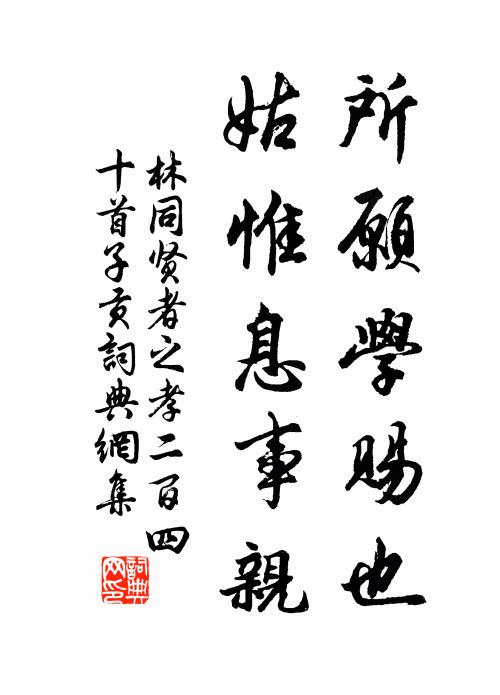 所願學賜也
姑惟息事親
林同賢者之孝二百四
十首子貢詞典網集
詞典
网印